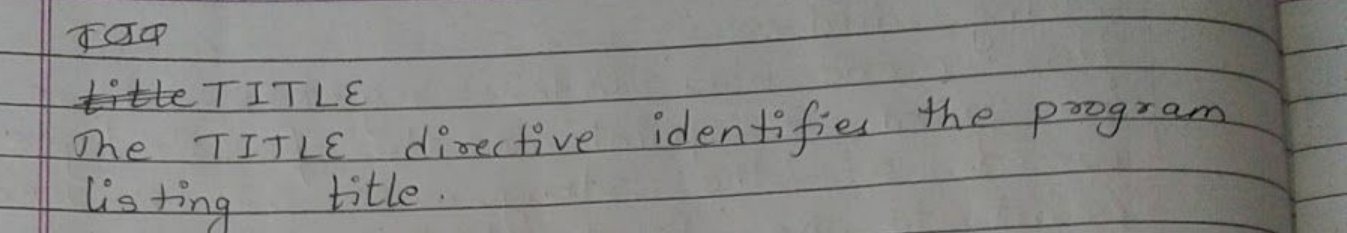 TITLE
The TITLE directive identifies the program
listing title.